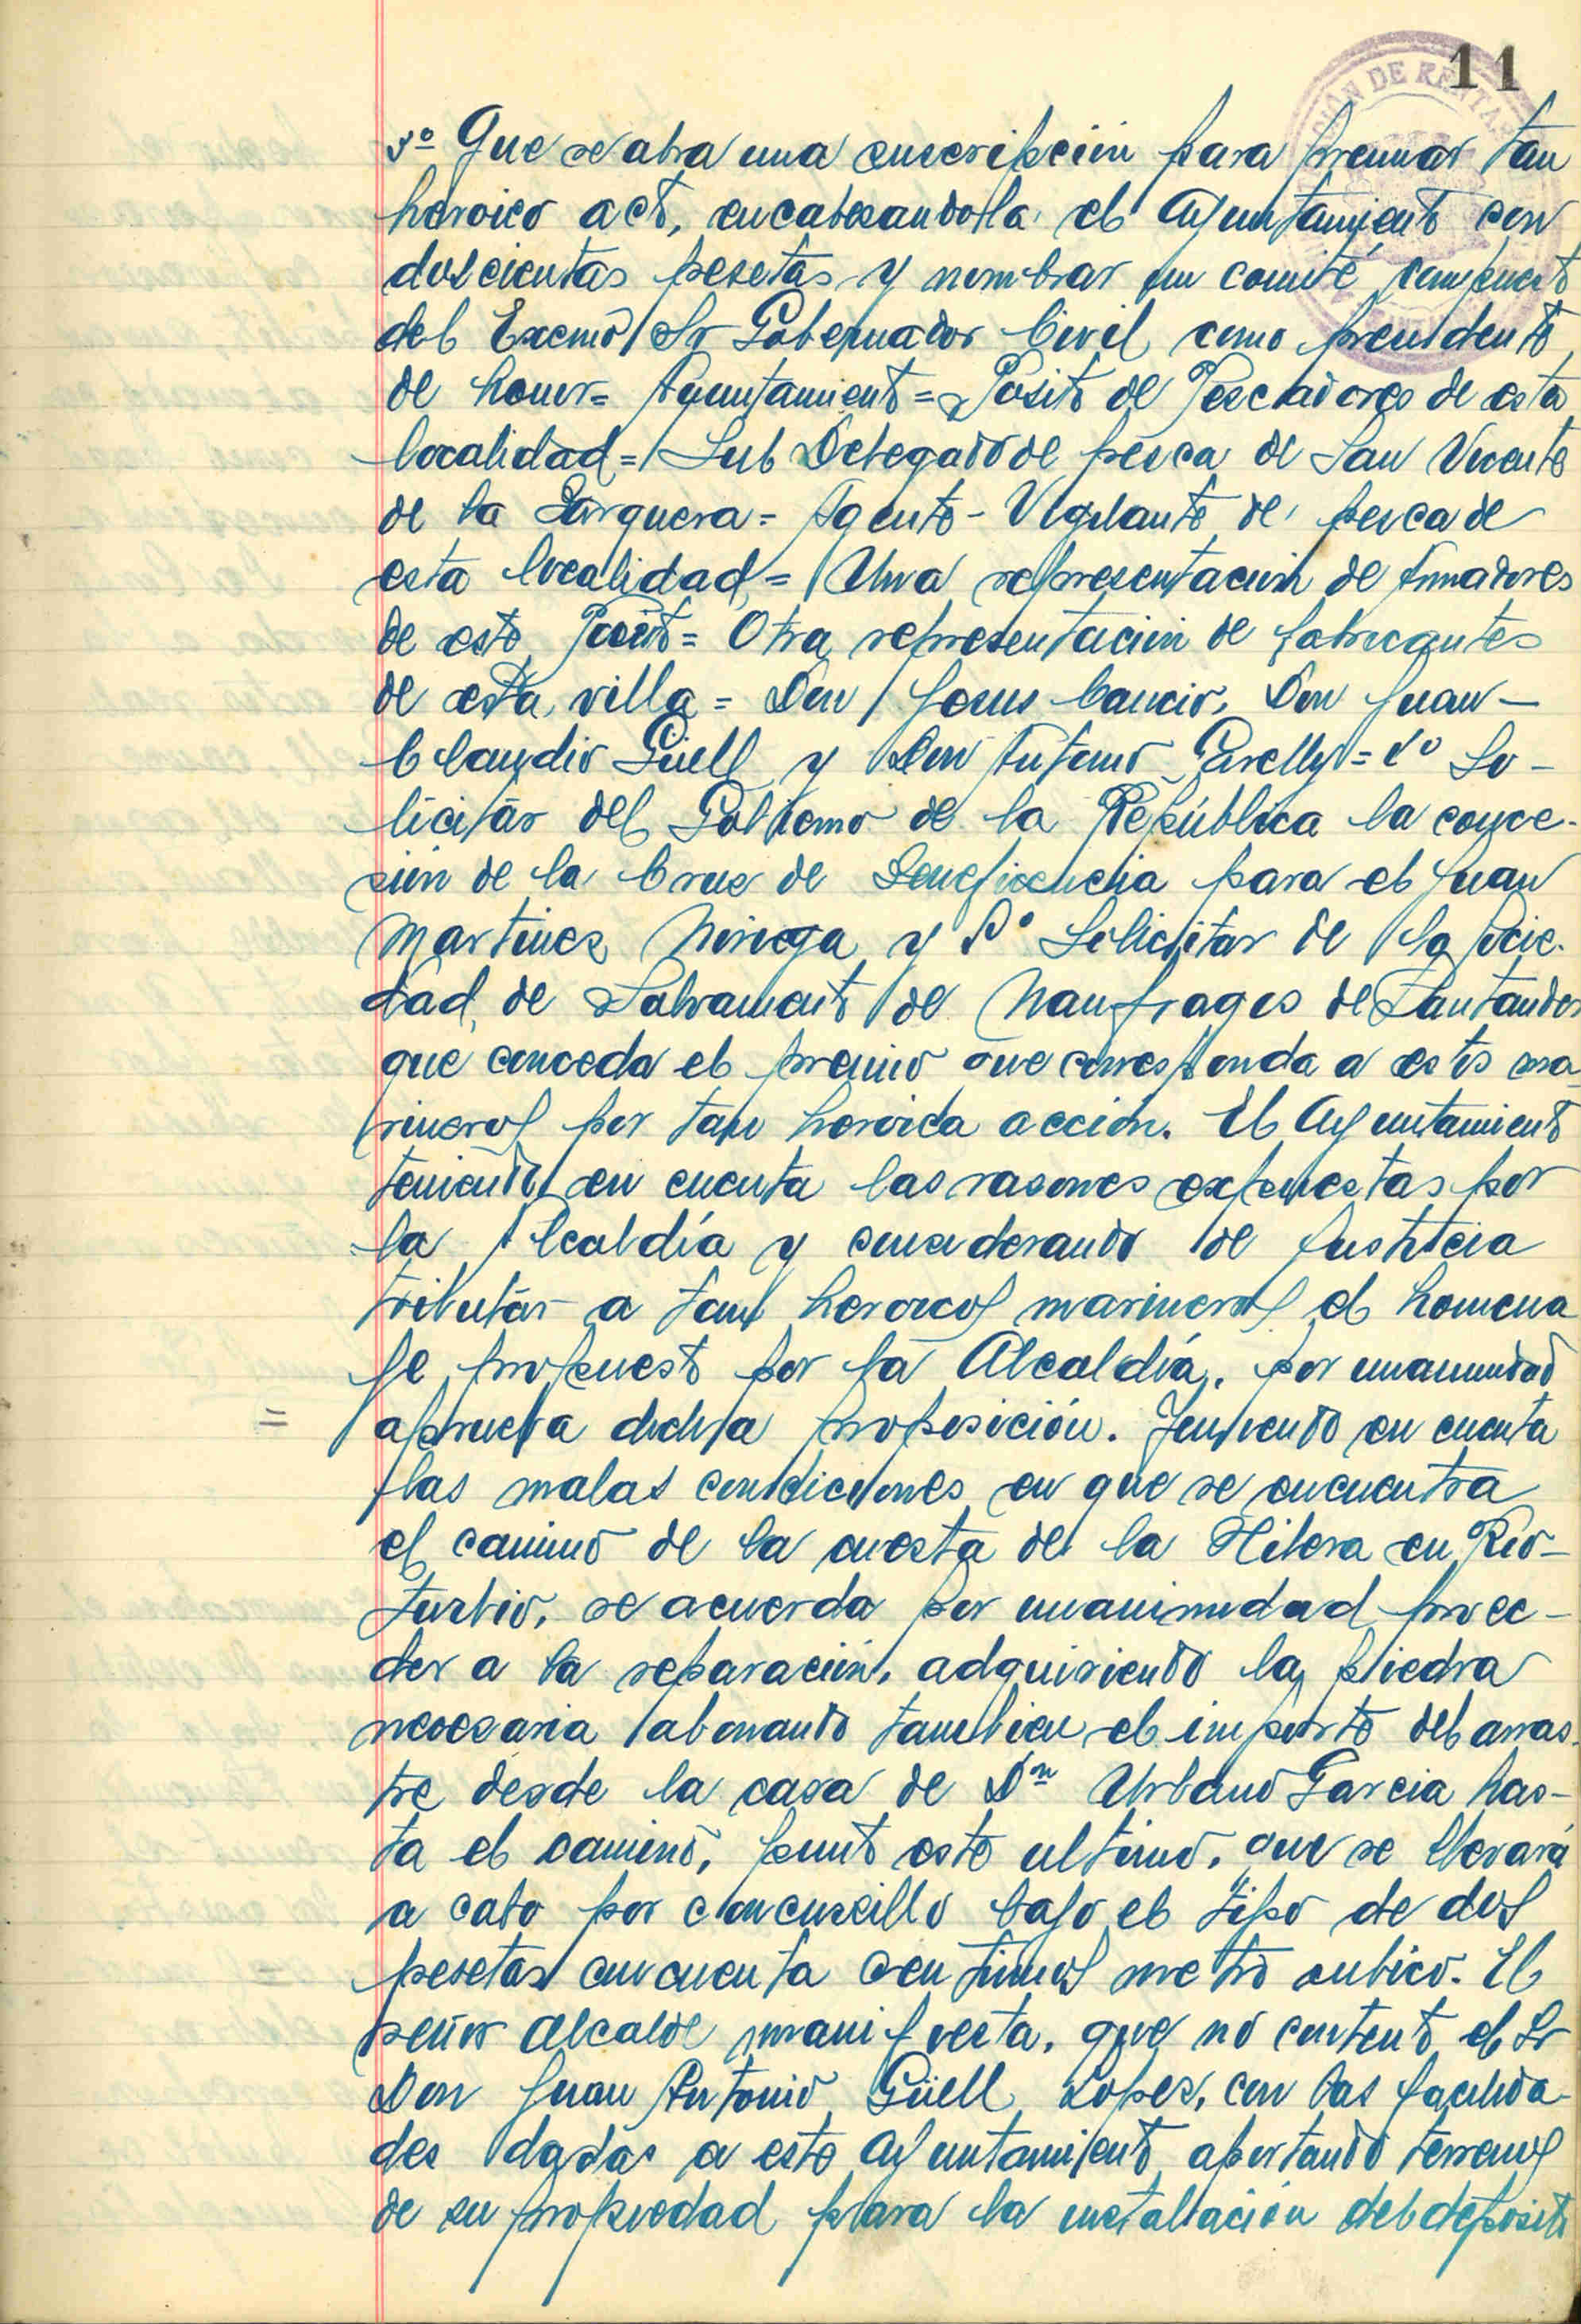 11
3º Que se abra una suscripción para premiar tan
heroico acto, encabezandola el Ayuntamiento con
doscientas pesetas y nombrar un comité compuesto
del Excmo Sr Gobernador Civil como presidente
de honor = Ayuntamiento = Posito de Pescadores de esta
localidad = Sub Delegado de pesca de San Vicente
de la Barquera = Agente - Vigilante de pesca de
esta localidad = Una representación de Armadores
de este Posito = Otra representación de fabricantes
de esta villa = Don Jesus Cancio, Don Juan
Claudio Güell y Don Antonio = 4º So-
licitar del Gobierno de la República la conce-
sión de la Cruz de Beneficencia para el Juan
Martinez Noriega y 5º Solicitar de la Socie-
dad de Salvamento de Naufragos de Santander
que conceda el premio que corresponda a estos ma-
rineros por tan heroica acción. El Ayuntamiento
teniendo en cuenta las razones expuestas por
la Alcaldía y considerando de Justicia
tributar a tan heroicos marineros el homena
je propuesto por la Alcaldía, por unanimidad
= aprueba dicha proposición. Teniendo en cuenta
las malas condiciones en que se encuentra
el camino de la cuesta de la Hilera en Rio-
turbio, se acuerda por unanimidad proce-
der a la reparación, adquiriendo la piedra
necesaria abonando tambien el importe del arras-
tre desde la casa de Dn Urbano Garcia has-
ta el camino, punto este ultimo, que se llevará
a cabo por concursillo bajo el tipo de dos
pesetas cincuenta centimos metro cubico. El
señor Alcalde manifiesta, que no contento el Sr
Don Juan Antonio Güell Lopez, con las facilida-
des dadas a este Ayuntamiento aportando terrenos
de su propiedad para la instalación del deposito